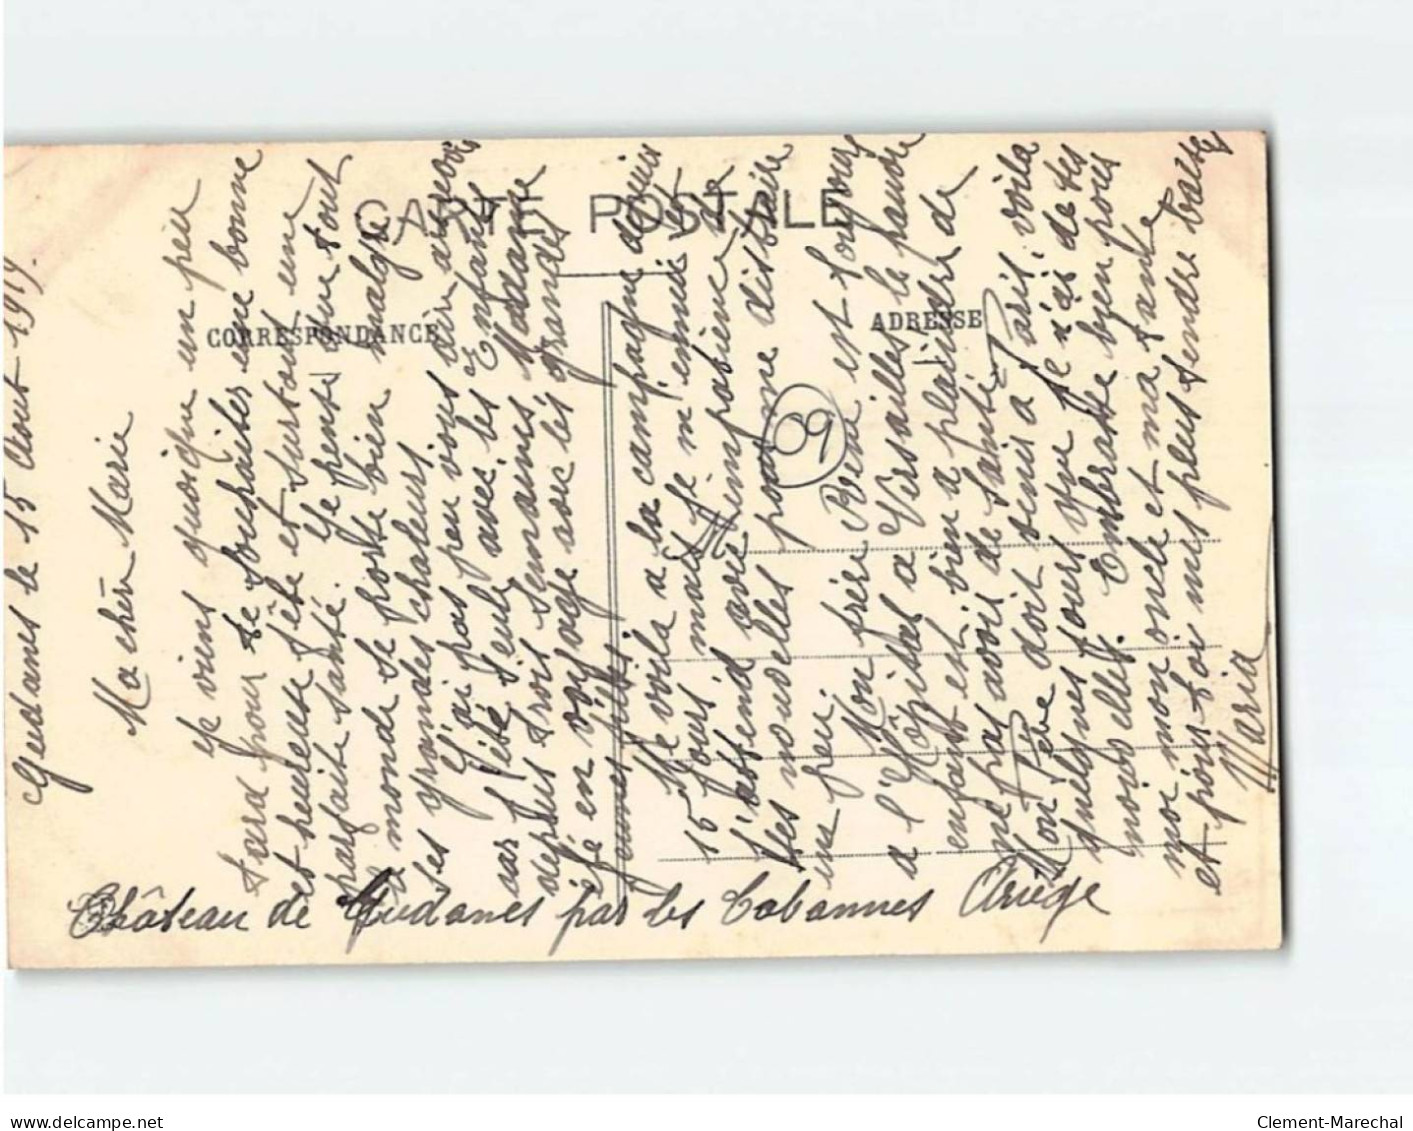 CARTE POSTALE
CORRESPONDANCE
ADRESSE
09
Gudanes le 15 Aout 1919.
Ma chère Marie
Je viens quoique un peu
tard pour te souhaiter une bonne
et heureuse fête et surtout une
parfaite santé. Je pense que tout
le monde se porte bien malgré
les grandes chaleurs
J'ai pas peu vous dire aurevoir
car j'été seule avec les Enfants
depuis trois semaines Madame
été en voyage avec les grandes
jeunes filles
Me voila a la campagne depuis
15 jours mais je m'ennuie et
j'attend avec impatience de
tes nouvelles pour me distraire
un peu. Mon frère René est toujours
a l'Hôpital a Versailles le pauvre
enfant est bien a plaindre de
ne pas avoir de santé
Mon Père doit venir a Paris voila
quelques jours que je n'ai de tes
nouvelles. Embrasse bien pour
moi mon oncle et ma tante
et pour toi mes plus tendre baisers
Maria
Château de Gudanes par les Cabannes Ariège
Clement-Marechal
delcampe.net